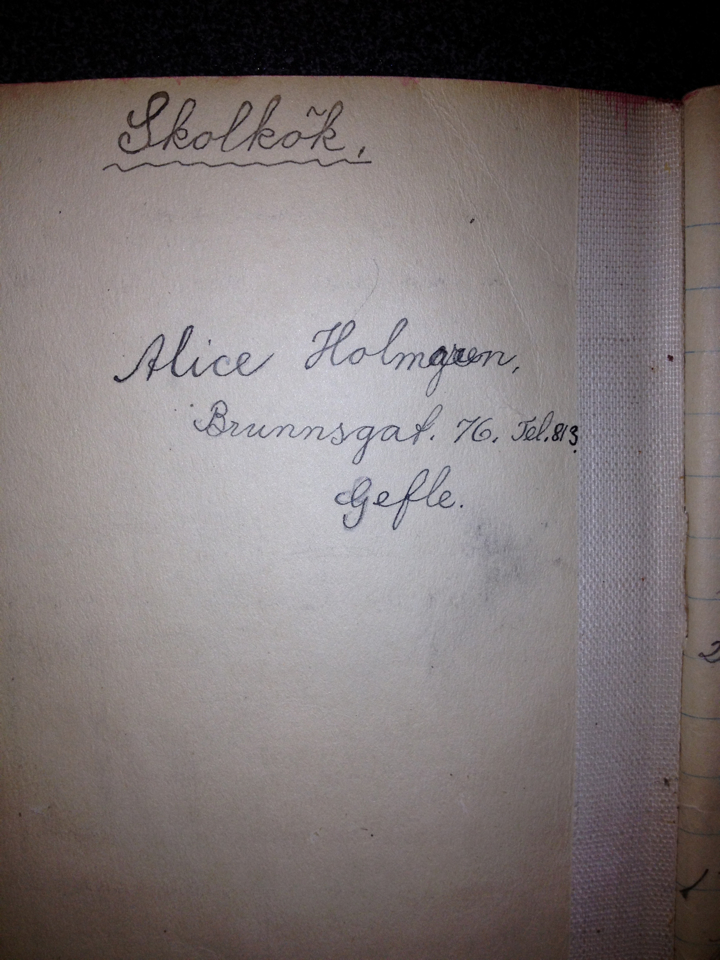 Skolkök.
Alice Holmgren,
Brunnsgat. 76. Tel. 813.
Gefle.